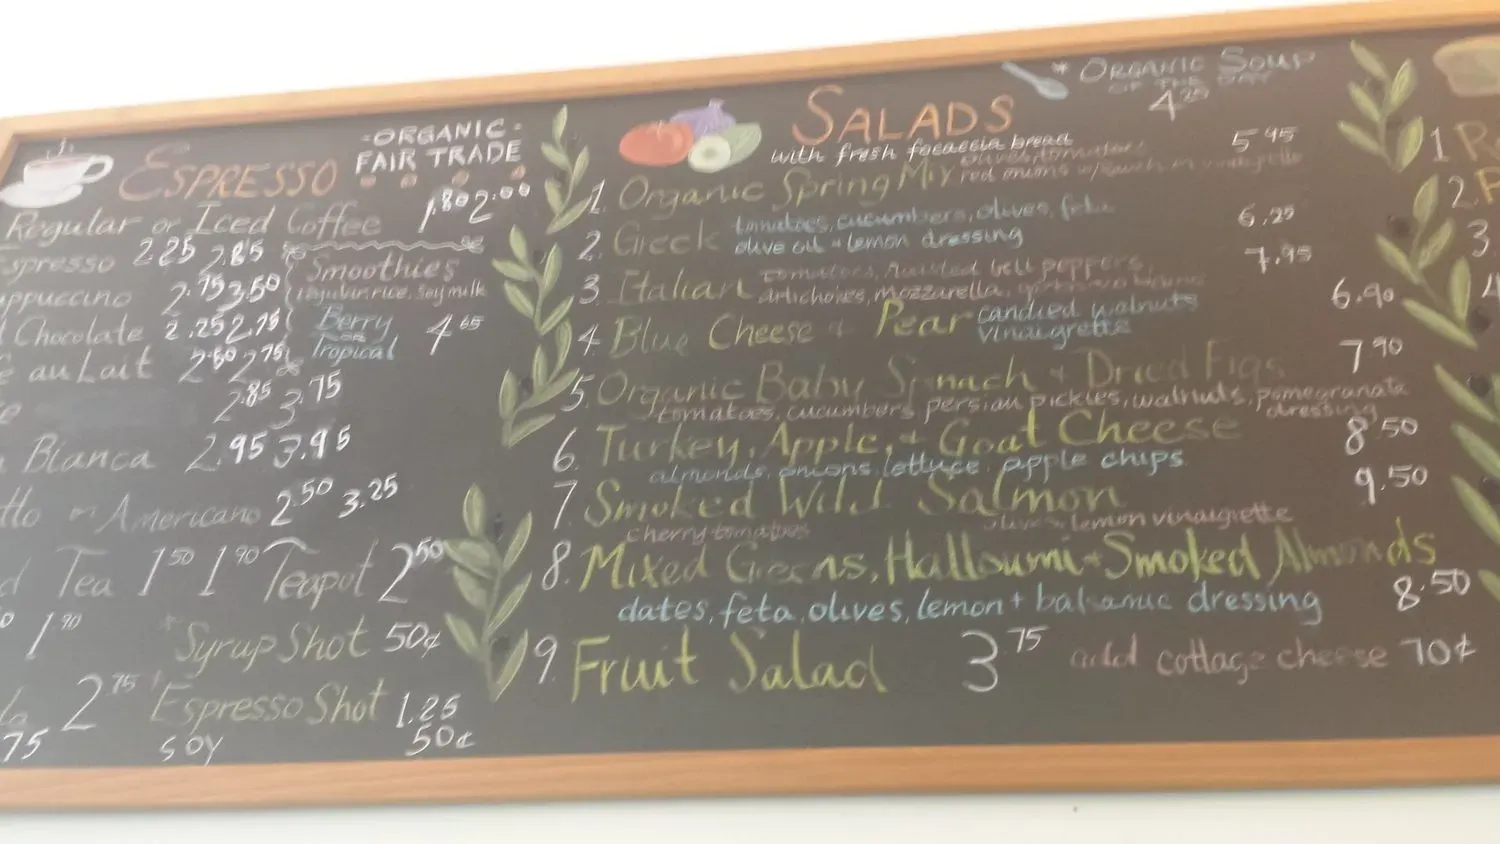 ESPRESSO
-ORGANIC-
FAIR TRADE
Regular or Iced Coffee 1.80 2.00
Espresso 2.25 2.85
ppuccino 2.75 3.50
Chocolate 2.25 2.75
au Lait 2.50 2.75
2.85 3.75
Blanca 2.95 3.95
Americano 2.50 3.25
Tea 1.50 1.90 Teapot 2.50
1.90
2.75
75
Smoothies
regular, rice, soy milk
Berry
or
Tropical
4.65
*Syrup Shot 50¢
Espresso Shot 1.25
soy 50¢
SALADS
with fresh focaccia bread
* ORGANIC SOUP
OF THE DAY
4.25
1. Organic Spring Mix olives, tomatoes 5.95
red onions w/
2. Greek tomatoes, cucumbers, olives, feta 6.25
olive oil + lemon dressing
3. Italian tomatoes, roasted bell peppers, 7.95
artichokes, mozzarella,
4. Blue Cheese + Pear candied walnuts 6.90
vinaigrette
5. Organic Baby Spinach + Dried Figs 7.90
tomatoes, cucumbers, persian pickles, walnuts, pomegranate
dressing
6. Turkey, Apple, + Goat Cheese 8.50
almonds, onions, lettuce, apple chips
7. Smoked Wild Salmon 9.50
cherry tomatoes olives lemon vinaigrette
8. Mixed Greens, Halloumi + Smoked Almonds
dates, feta, olives, lemon + balsamic dressing 8.50
9. Fruit Salad 3.75 add cottage cheese 70¢
1
2.
3.
4